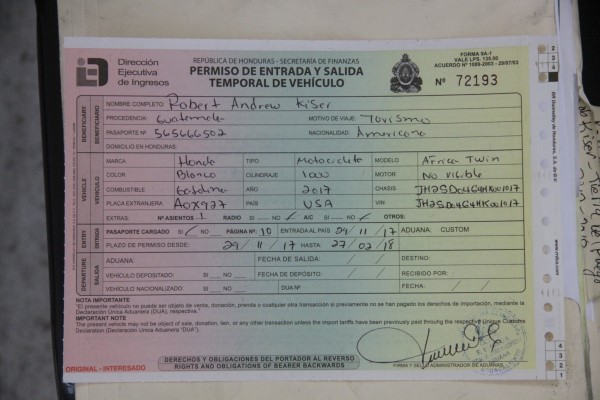 Dirección
Ejecutiva
de Ingresos
REPÚBLICA DE HONDURAS - SECRETARÍA DE FINANZAS
PERMISO DE ENTRADA Y SALIDA
TEMPORAL DE VEHÍCULO
FORMA 9A-1
VALE LPS. 135.00
Nº 72193
BENEFICIARIO
BENEFICIARY
NOMBRE COMPLETO: Robert Andrew Kiser
PROCEDENCIA: Guatemala MOTIVO DE VIAJE: Turismo
PASAPORTE Nº 565666502 NACIONALIDAD: Americana
DOMICILIO EN HONDURAS:
VEHÍCULO
VEHICLE
MARCA Honda TIPO Motocicleta MODELO Africa Twin
COLOR Blanco CILINDRAJE 1000 MOTOR No Visible
COMBUSTIBLE Gasolina AÑO 2017 CHASIS
PLACA EXTRANJERA AOX927 PAÍS USA VIN
EXTRAS: Nº ASIENTOS 1 RADIO SI NO A/C SI NO OTROS:
ENTRY
ENTRADA
PASAPORTE CARGADO SI NO PÁGINA Nº: 10 ENTRADA AL PAÍS / 11 / 17 ADUANA: CUSTOM
PLAZO DE PERMISO DESDE: 29 / 11 / 17 HASTA 27 / 02 / 18
DEPARTURE
SALIDA
ADUANA: FECHA DE SALIDA: / / DESTINO:
VEHÍCULO DEPOSITADO: SI NO FECHA DE DEPÓSITO: / / RECIBIDO POR:
VEHÍCULO NACIONALIZADO: SI NO DUA Nº FECHA: / /
NOTA IMPORTANTE
"El presente vehículo no puede ser objeto de venta, donación, prenda o cualquier otra transacción si previamente no se han pagado los derechos de importación, mediante la
Declaración Única Aduanera (DUA), respectiva."
IMPORTANT NOTE
The present vehicle may not be object of sale, donation, lien, or any other transaction unless the import taxes have been previously paid through the respective Unique Customs
Declaration (Declaración Única Aduanera "DUA").
DERECHOS Y OBLIGACIONES DEL PORTADOR AL REVERSO
RIGHTS AND OBLIGATIONS OF BEARER BACKWARDS
ORIGINAL - INTERESADO
FIRMA Y SELLO ADMINISTRADOR DE ADUANAS